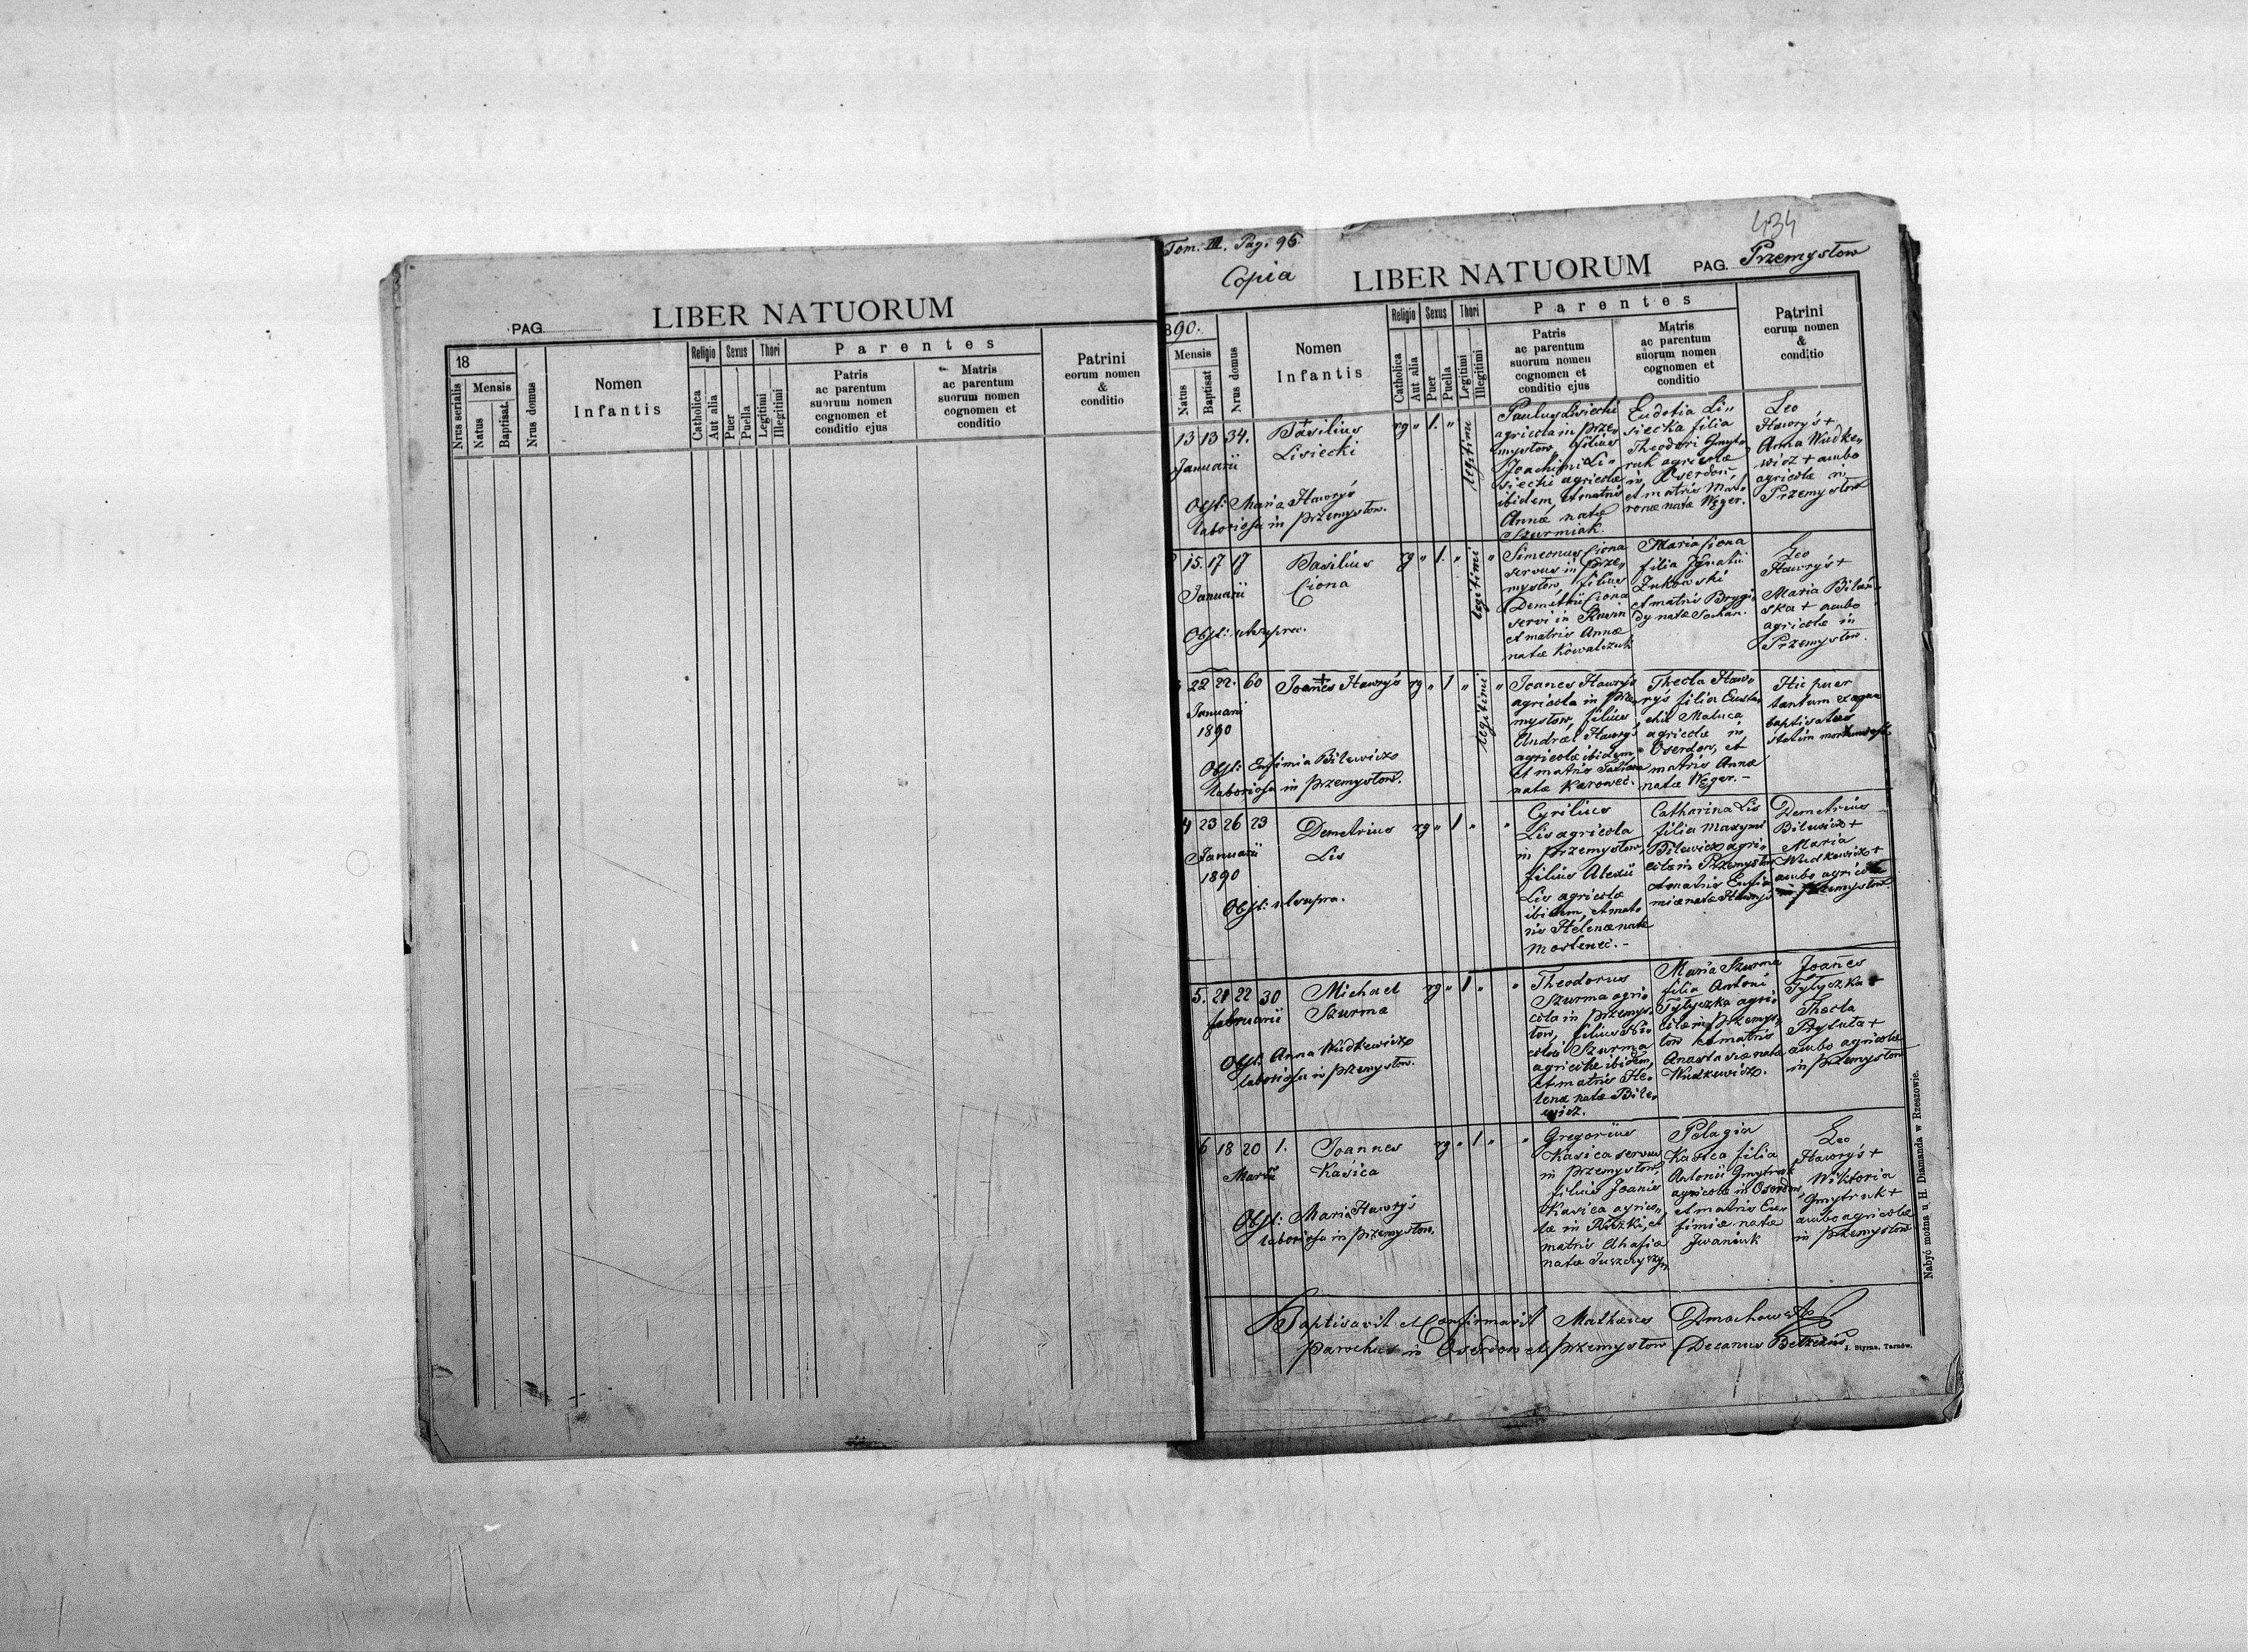 PAG.
LIBER NATUORUM
18
Nrus serialis
Mensis
Natus
Baptisat.
Nrus domus
Nomen
Infantis
Religio
Catholica
Aut alia
Sexus
Puer
Puella
Thori
Legitimi
Illegitimi
Parentes
Patris
ac parentum
suorum nomen
cognomen et
conditio ejus
Matris
ac parentum
suorum nomen
cognomen et
conditio
Patrini
eorum nomen
&
conditio
434
Tom. III. Pag. 95
Copia
LIBER NATUORUM
PAG. Przemysłow
890.
Mensis
Natus
Baptisat
Nrus domus
Nomen
Infantis
Religio
Catholica
Aut alia
Sexus
Puer
Puella
Thori
Legitimi
Illegitimi
Parentes
Patris
ac parentum
suorum nomen
cognomen et
conditio ejus
Matris
ac parentum
suorum nomen
cognomen et
conditio
Patrini
eorum nomen
&
conditio
13 13 34.
Januarii
Basilius
Lisiecki
Obst: Maria Hawryś
laboriosa in Przemysłow.
rg " 1. "
legitimi
Paulus Lisiecki
agricola in Prze„
mysłow, filius
Joachimi Li„
siecki agricolæ
ibidem, et matris
Annæ natæ
Szurmiak.
Eudotia Li„
siecka filia
Theodori Gmyt„
ruk agricolæ
in Oserdow
et matris Mat„
ronæ natæ Węger.
Leo
Hawryś +
Anna Wudke„
wicz + ambo
agricolæ in
Przemysłow
15. 17 17
Januarii
Basilius
Ciona
Obst: ut supra.
rg " 1. "
legitimi
"
Simeonus Ciona
servus in Prze„
mysłow filius
Demetrii Ciona
servi in
et matris Annæ
natæ Kowalczuk
Maria Ciona
filia Ignatii
Zukowski
et matris Brygi„
dy natæ Sochan.
Leo
Hawryś +
Maria Bilań„
ska + ambo
agricolæ in
Przemysłow.
22 22. 60
Januarii
1890
Joanes Hawryś
Obst: Eufimia Bilewicz
laboriosa in Przemysłow.
rg " 1 "
legitimi
"
Joanes Hawryś
agricola in Prze„
mysłow, filius
Andræi Hawryś
agricolæ ibidem
et matris Tatianæ
natæ Karoweć.
Thecla Haw„
ryś filia Eusta„
chii Maluca
agricolæ in
Oserdow, et
matris Annæ
natæ Węger. –
Hic puer
tantum ex aqua
baptisatus
statim mortuus est
4 23 26 23
Januarii
1890
Demetrius
Lis
Obst: ut supra.
rg " 1 " "
Cyrilius
Lis agricola
in Przemysłow,
filius Alexii
Lis agricolæ
ibidem, et mat„
ris Helenæ natæ
Mosteneć. –
Catharina Lis
filia Maxymi
Bilewicz agri„
colæ in Przemysłow
et matris Eufi„
miæ natæ Hawryś
Demetrius
Bilewicz +
Maria
Wudkewicz +
ambo agricolæ
in Przemysłow.
5. 21 22 30
februarii
Michael
Szurma
Obst: Anna Wudkewicz
laboriosa in Przemysłow.
rg " 1 " "
Theodorus
Szurma agri„
cola in Przemys„
łow, filius Ni„
colai Szurma
agricolæ ibidem,
et matris He„
lenæ natæ Bile„
wicz.
Maria Szurma
filia Antoni
Tyłyszka agri„
colæ in Przemys„
łow et matris
Anastasiæ natæ
Wudkewicz.
Joanes
Tyłyszka +
Thecla
Pryłuta +
ambo agricolæ
in Przemysłow
6 18 20 1.
Martii
Joannes
Kasica
Obst: Maria Hawryś
laboriosa in Przemysłow.
rg " 1 " "
Gregorius
Kasica servus
in Przemysłow,
filius Joanis
Kasica agrico„
læ in et
matris Ahafiæ
natæ Juszczyszyn
Pelagia
Kasica filia
Antonii Gmytruk
agricolæ in Oserdow,
et matris Eu„
fimiæ natæ
Iwaniuk
Leo
Hawryś +
Wiktoria
Gmytruk +
ambo agricolæ
in Przemysłow.
Baptisavit et Confirmavit Mathæus Dmochowski
Parochus in Oserdow et Przemysłow Decanus
Nabyć można u H. Diamanda w Rzeszowie.
J. Styrna, Tarnów.